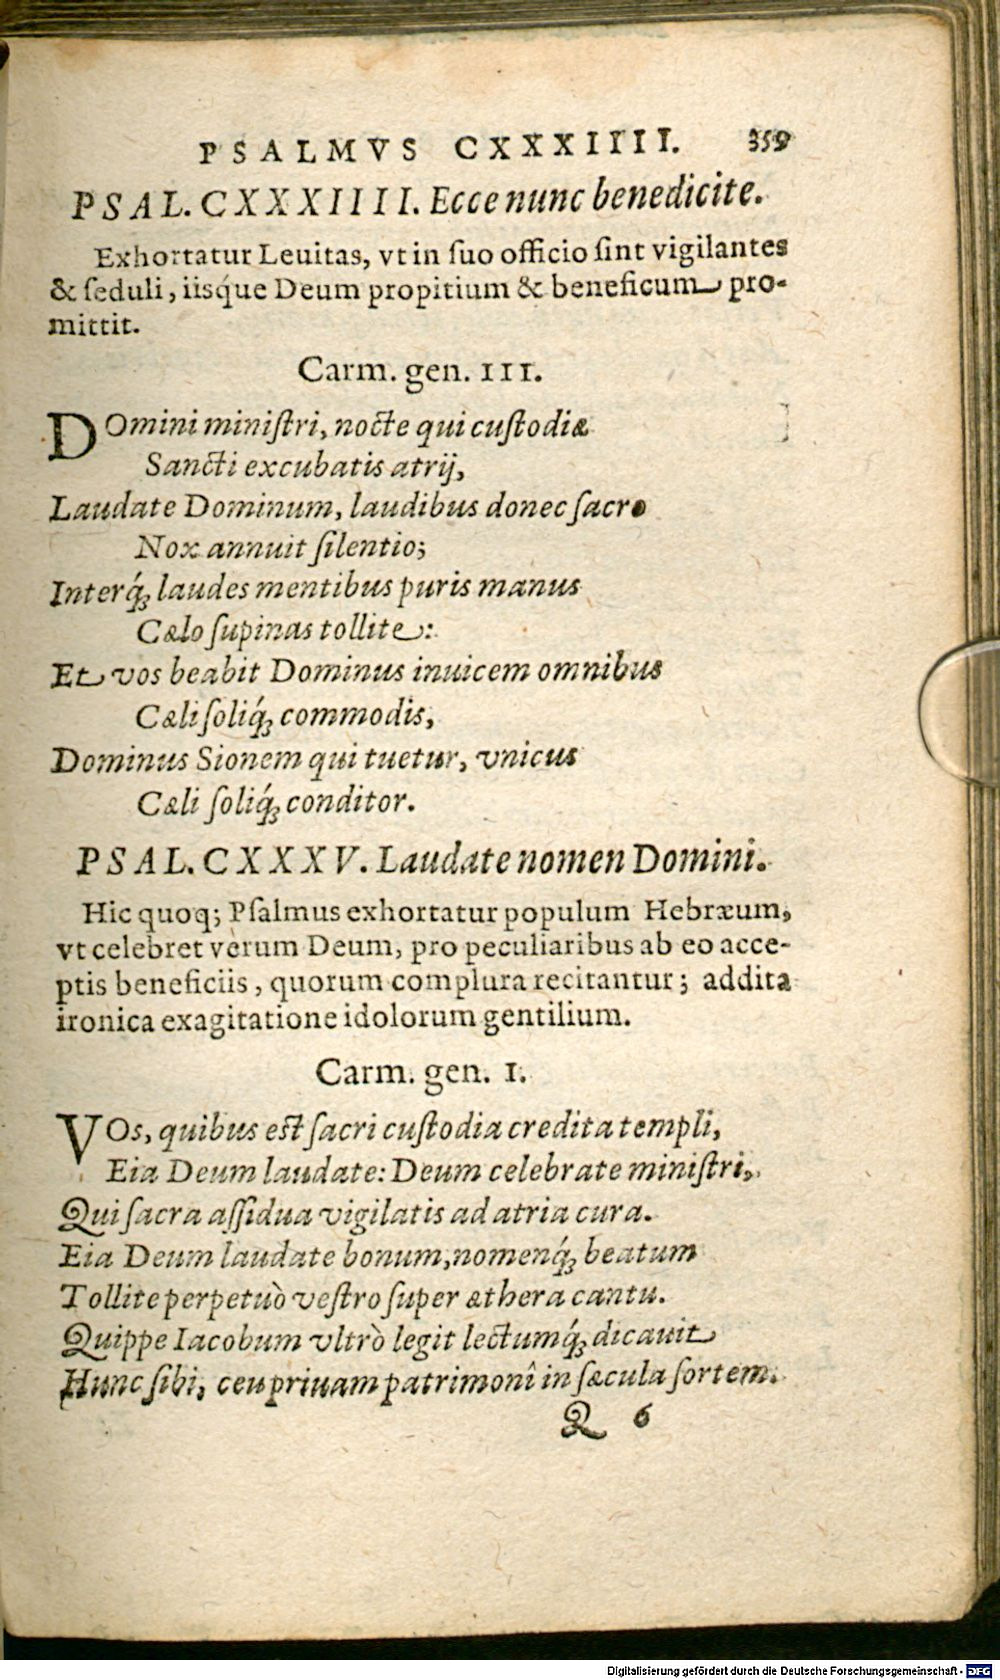 PSALMVS CXXXIIII. 359
PSAL. CXXXIIII. Ecce nunc benedicite.
Exhortatur Leuitas, vt in ſuo officio ſint vigilantes
& ſeduli, iisq́ue Deum propitium & beneficum pro-
mittit.
Carm. gen. III.
DOmini miniſtri, nocte qui cuſtodiæ
Sancti excubatis atrij,
Laudate Dominum, laudibus donec ſacro
Nox annuit ſilentio;
Interq́ꝫ laudes mentibus puris manus
Cælo ſupinas tollite:
Et vos beabit Dominus inuicem omnibus
Cæli ſoliq́ꝫ commodis,
Dominus Sionem qui tuetur, vnicus
Cæli ſoliq́ꝫ conditor.
PSAL. CXXXV. Laudate nomen Domini.
Hic quoq; Pſalmus exhortatur populum Hebræum,
vt celebret verum Deum, pro peculiaribus ab eo acce-
ptis beneficiis, quorum complura recitantur; addita
ironica exagitatione idolorum gentilium.
Carm. gen. I.
VOs, quibus eſt ſacri cuſtodia credita templi,
Eia Deum laudate: Deum celebrate miniſtri,
Qui ſacra aſſidua vigilatis ad atria cura.
Eia Deum laudate bonum, nomenq́ꝫ beatum
Tollite perpetuò veſtro ſuper æthera cantu.
Quippe Iacobum vltrò legit lectumq́ꝫ dicauit
Hunc ſibi, ceu priuam patrimonî in ſæcula ſortem.
Q 6
Digitalisierung gefördert durch die Deutsche Forschungsgemeinschaft - DFG